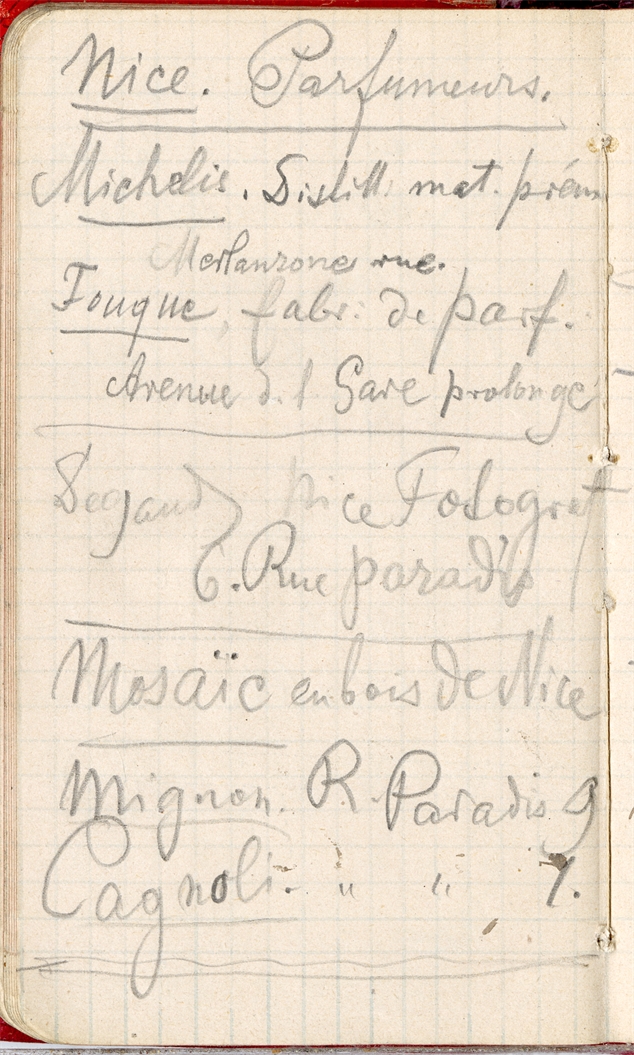 Nice. Parfumeurs.
Michelis. Distill. mat. prém
Merlanzone rue.
Fouque, fabr. de parf.
Avenue d. l Gare prolongé
Degand Nice Fotograf
6. Rue paradis
Mosaïc en bois de Nice
Mignon. R. Paradis 9
Cagnoli. " " 7.